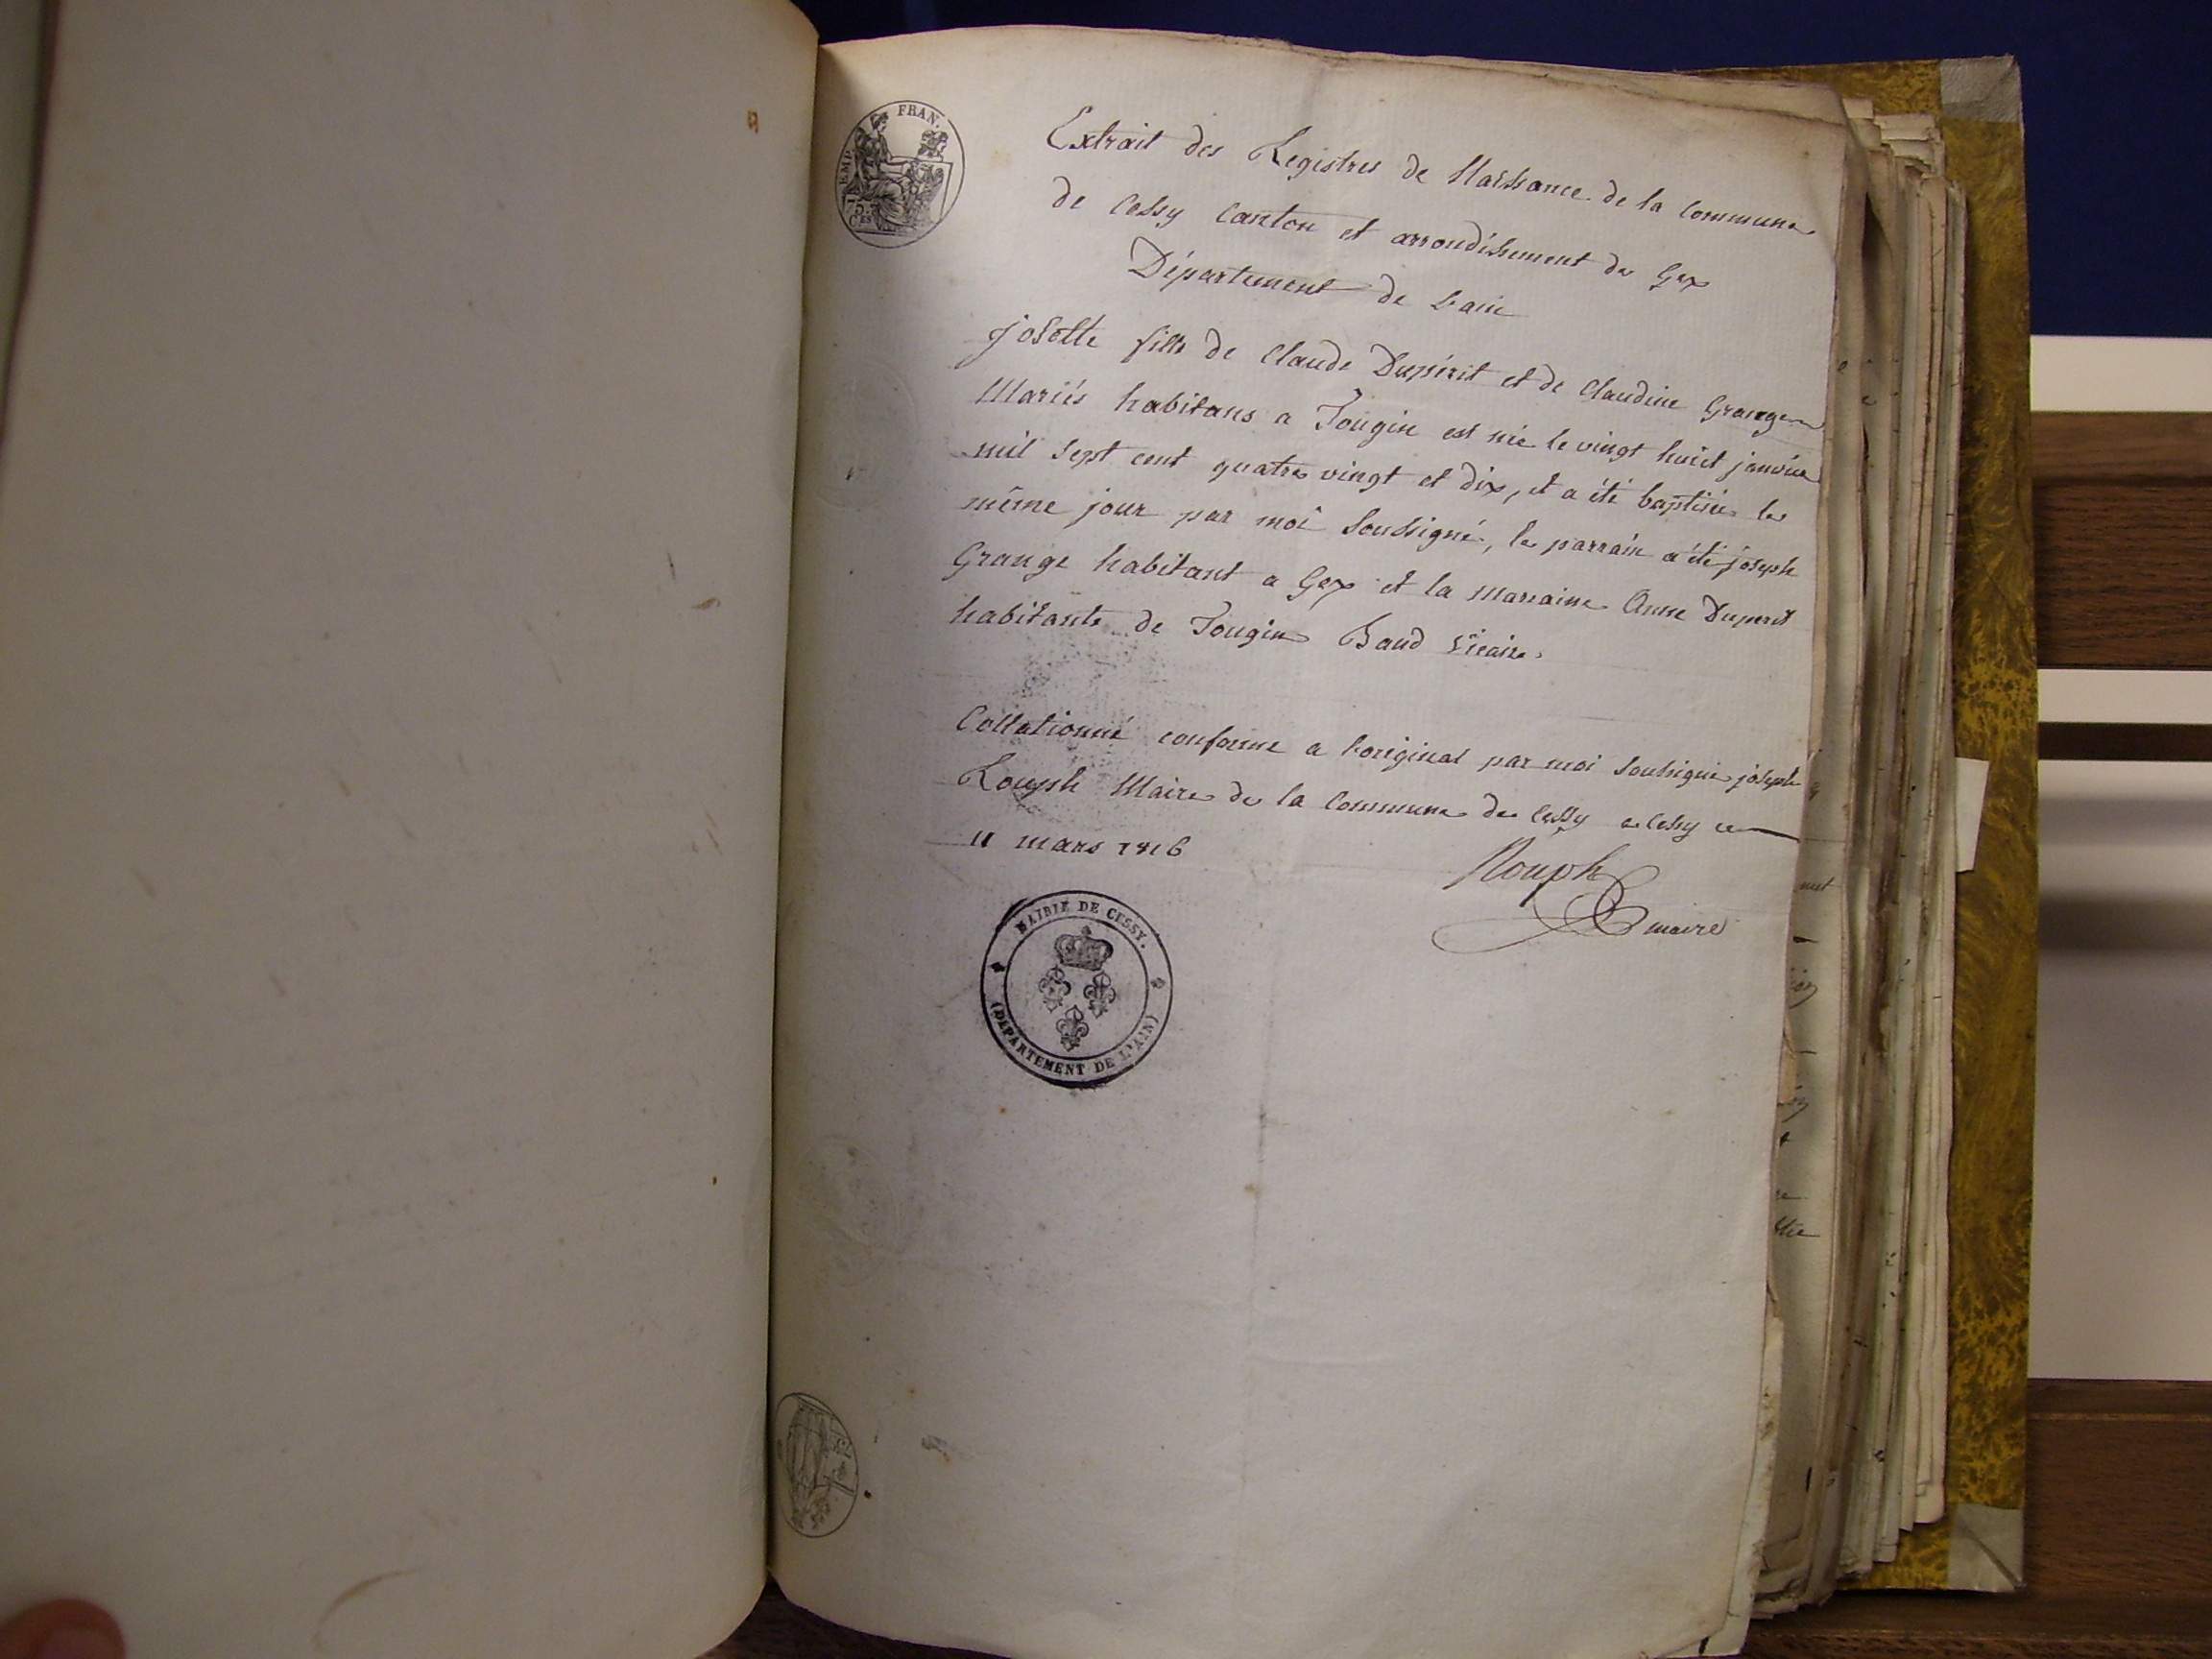 EMP. FRAN.
75
CES
Extrait des Registres de Naissance de la Commune
de Cessy Canton et arrondissement de Gex
Département de Lain
josette fille de Claude Dupérit et de Claudine Grange
Mariés habitans a Tougin est née le vingt huit janvier
mil sept cent quatre vingt et dix, et a été baptisée le
même jour par moi Soussigné, le parrain a été joseph
Grange habitant a Gex et la marraine Anne Duperit
habitante de Tougin Baud vicaire.
Collationné conforme a l'original par moi Soussigné joseph
Rouph Maire de la Commune de Cessy a Cessy ce
11 mars 1816
Rouph
maire
MAIRIE DE CESSY.
(DEPARTEMENT DE L'AIN)